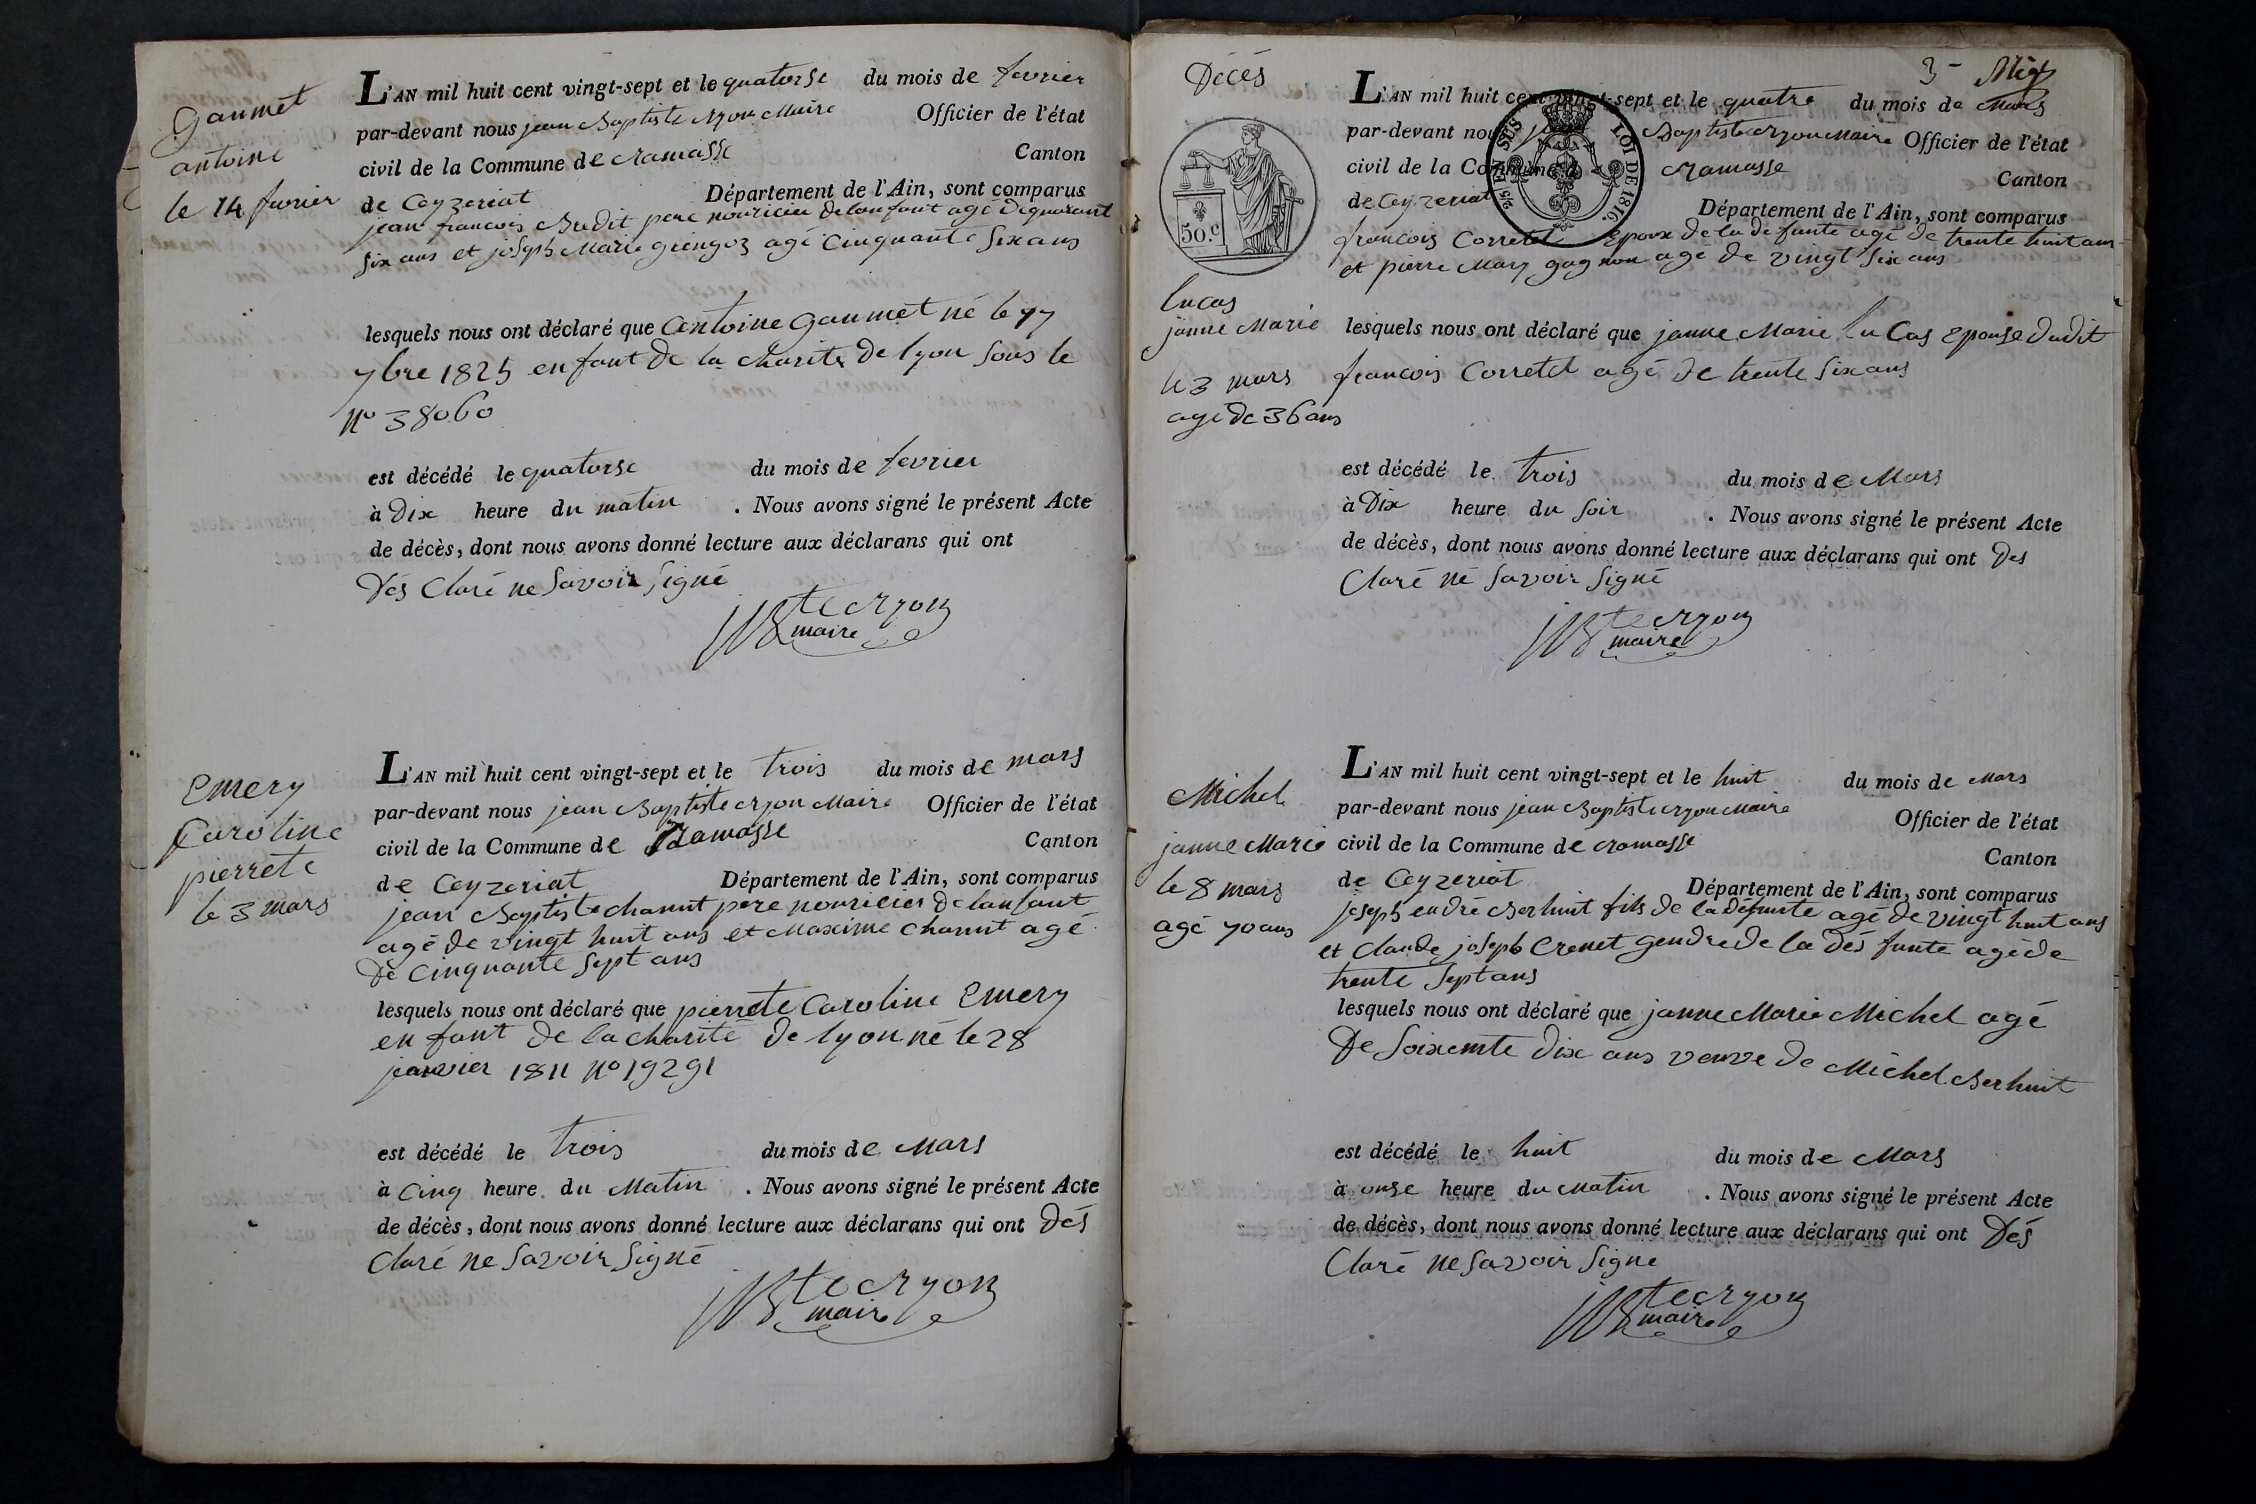 Gaumet
antoine
le 14 fevrier
L'AN mil huit cent vingt-sept et le quatorse du mois de fevrier
par-devant nous jean Baptiste Ryon Maire Officier de l'état
civil de la Commune de Ramasse Canton
de Ceyzeriat Département de l'Ain, sont comparus
jean francois Budit pere nouricier de lanfant agé de quarant
six ans et joseph Marie agé cinquante six ans
lesquels nous ont déclaré que antoine Gaumet né le 77
7bre 1825 enfant de la charite de lyon sous le
no 38060
est décédé le quatorse du mois de fevrier
à Dix heure du matin . Nous avons signé le présent Acte
de décès, dont nous avons donné lecture aux déclarans qui ont
Dés Claré ne Savoir Signé
JB te Ryon
maire
Emery
Caroline
pierrete
le 3 mars
L'AN mil huit cent vingt-sept et le trois du mois de mars
par-devant nous jean Baptiste Ryon Maire Officier de l'état
civil de la Commune de Ramasse Canton
de Ceyzeriat Département de l'Ain, sont comparus
jean Baptiste chanut pere nouricier de lanfant
agé de vingt huit ans et Maxime chanut agé
De cinquante Sept ans
lesquels nous ont déclaré que pierrete Caroline Emery
enfant de la charité de lyon né le 28
janvier 1811 no 19291
est décédé le trois du mois de Mars
à Cinq heure du Matin . Nous avons signé le présent Acte
de décès, dont nous avons donné lecture aux déclarans qui ont Dés
Claré ne Savoir Signé
JB te Ryon
maire
Décés
3
50.c
2/5 EN SUS LOI DE 1816.
lucas
janne Marie
le 3 mars
agé de 36 ans
L'AN mil huit cent vingt-sept et le quatre du mois de Mars
par-devant nous jean Baptiste Ryon Maire Officier de l'état
civil de la Commune de Ramasse Canton
de Ceyzeriat Département de l'Ain, sont comparus
francois Corretel Epoux de la défunte agé de trente huit ans
et pierre Mary gagnon agé de vingt six ans
lesquels nous ont déclaré que janne Marie lucas Epouse dudit
francois Corretel agé de trente Six ans
est décédé le trois du mois de Mars
à Dix heure du Soir . Nous avons signé le présent Acte
de décès, dont nous avons donné lecture aux déclarans qui ont Des
Claré ne Savoir Signé
JB te Ryon
maire
Michel
janne Marie
le 8 mars
agé 70 ans
L'AN mil huit cent vingt-sept et le huit du mois de Mars
par-devant nous jean Baptiste Ryon Maire Officier de l'état
civil de la Commune de Ramasse Canton
de Ceyzeriat Département de l'Ain, sont comparus
joseph endré Berhuit fils de la défunte agé de vingt huit ans
et Claude joseph Crenet gendre de la dés funte agé de
trente Sept ans
lesquels nous ont déclaré que janne Marie Michel agé
De Soixemte dix ans veuve de Michel Berhuit
est décédé le huit du mois de Mars
à onse heure du Matin . Nous avons signé le présent Acte
de décès, dont nous avons donné lecture aux déclarans qui ont Dés
Claré ne Savoir Signé
JB te Ryon
maire